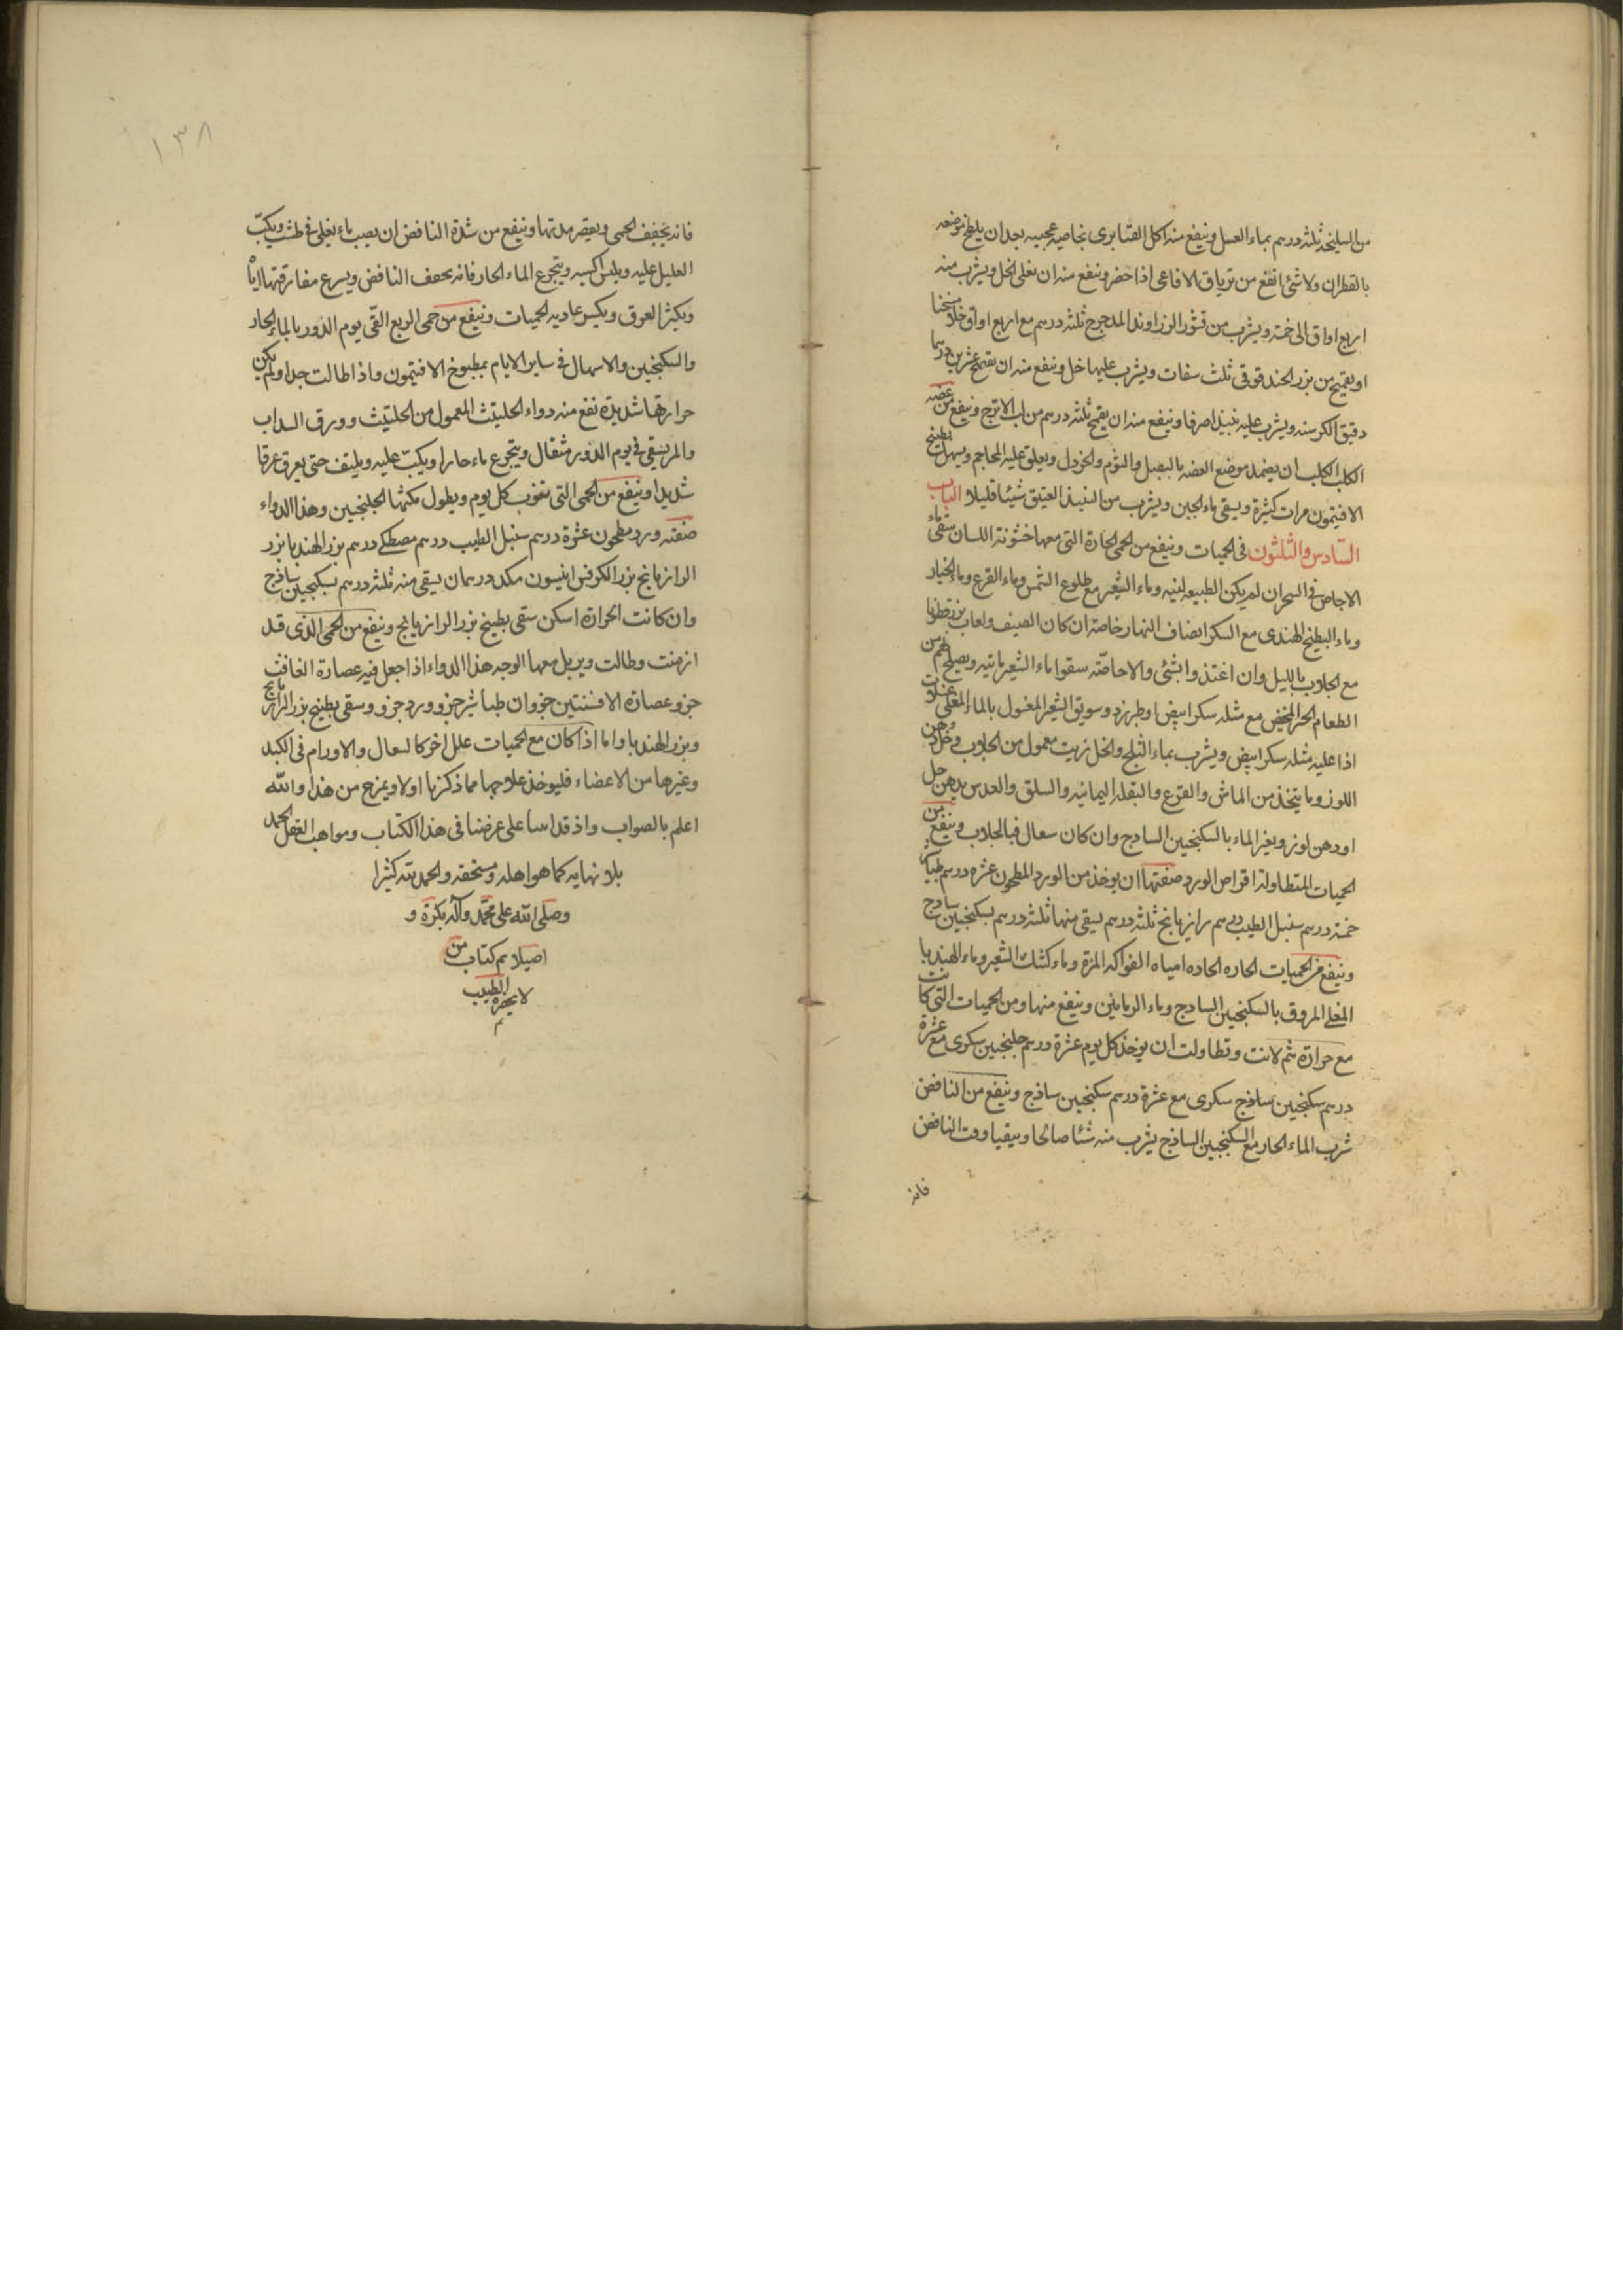 من السليخة ثلثه درهم بماء العسل وينفع منه اكل القنابرى بخاصية عجيبه بعد ان يلطخ موضعه
بالقطران ولا شئ انفع من ترياق الافاعى اذا حضر وينفع منه ان يغلى الخل ويشرب منه
اربع اواق الى خمسة ويشرب من قشور الزراوند المدحرج ثلثه درهم مع اربع اواق خلا مسخنا
او يقمح من بزر الحندقوقى ثلث سفات ويشرب عليها خل وينفع منه ان يقمح عشرين درهما
دقيق الكرسنه ويشرب عليه نبيذا صرفا وينفع منه ان يقمح ثلثه درهم من لب الاترج وينفع من عضه
الكلب الكلب ان يضمد موضع العضه بالبصل والثوم والخردل ويعلق عليه المحاجم ويسهل بطبيخ
الافتيمون مرات كثيرة ويسقى ماء الجبن ويشرب من النبيذ العتيق شيئا قليلا الباب
السّادس والثلثون فى الحميات وينفع من الحمى الحارة التى معها خشونة اللسان سقى ماء
الاجاص فى السحر ان لم يكن الطبيعه لينه وماء الشعير مع طلوع الشمس وماء القرع وماء الخيار
وماء البطيخ الهندى مع السكر انصاف النهار خاصة ان كان الصيف ولعاب بزرقطونا
مع الجلاب بالليل وان اغتذوا بشئ والا حاصّة سقوا ماء الشعير ثانيه ويصلح لهم من
الطعام الخبز المحمض مع مثله سكر ابيض او طبرزد وسويق الشعير المغسول بالماء المغلى غسلات
اذا عليه مثله سكر ابيض ويشرب بماء الثلج والخل زيت معمول من الجلاب وخل ودهن
اللوز وما يتخذ من الماش والقرع والبقلة اليمانيه والسلق والعدس بدهن حل
او دهن لوز ويغير الماء بالسكنجبين الساذج وان كان سعال فبالجلاب وينفع من
الحميات المتطاولة اقراص الورد صنعتها ان يوخذ من الورد المطحون عشره درهم طباشير
خمسة درهم سنبل الطيب درهم رازيانج ثلثة درهم يسقى منها ثلثة درهم بسكنجبين ساذج
وينفع من الحميات الحاره الحاده امياه الفواكه المزة وماء كشك الشعير وماء الهندبا
المغلى المروق بالسكنجبين الساذج وماء الرمانين وينفع منها ومن الحميات التى كانت
مع حرارة ثم لانت وتطاولت ان يوخذ كل يوم عشرة درهم جلنجبين سكرى مع عشرة
درهم سكنجبين ساذج سكرى مع عشرة درهم سكنجبين ساذج وينفع من النافض
شرب الماء الحار مع السكنجبين الساذج يشرب منه شئا صالحا ويتقيا وقت النافض
فانه
١٣٨
فانه يخفف الحمى ويقصر مدتها وينفع من شدة النافض ان يصب ماء يغلى فى طشت ويكبّ
العليل عليه ويلبس اكسيه ويتجرع الماء الحار فانه يخفف النافض ويسرع مفارقتها ايّاه
ويكثر العرق ويكسر عادية الحميات وينفع من حمى الربع القى يوم الدور بالماء الحار
والسكنجبين والاسهال فى ساير الايام بمطبوخ الافتيمون واذا طالت جدا ولم يكن
حرارتها شديدة نفع منه دواء الحلتيث المعمول من الحلتيث وورق السداب
والمر يسقى فى يوم الدور مثقال ويتجرع ماء حارا ويكبّ عليه ويلتف حتى يعرق عرقا
شديدا وينفع من الحمى التى تنوب كل يوم ويطول مكثها الجلنجبين وهذا الدواء
صنعته ورد مطحون عشرة درهم سنبل الطيب درهم مصطكى درهم بزر الهندبا بزر
الرازيانج بزر الكرفس انيسون مكد درهمان يسقى منه ثلثه درهم بسكنجبين ساذج
وان كانت الحرارة اسكن سقى بطبيخ بزر الرازيانج وينفع من الحمى الذى قد
ازمنت وطالت وتربل معها الوجه هذا الدواء اذا جعل فيه عصارة الغافث
جزو عصارة الافسنتين جزوان طباشير جزو ورد جزو وسقى بطبيخ بزر الرازيانج
وبزر الهندبا واما اذا كان مع الحميات علل اخر كالسعال والاورام فى الكبد
وغيرها من الاعضاء فليوخذ علاجها مما ذكرنا اولا ويمزج من هذا والله
اعلم بالصواب واذ قد اتينا على غرضنا فى هذا الكتاب ومواهب العقل الحمد
بلا نهايه كما هو اهله ومستحقه والحمد لله كثيرا
وصلى الله على محمّد وآله بكرة و
اصيلا تم كتاب من
لا يحضره الطبيب
م